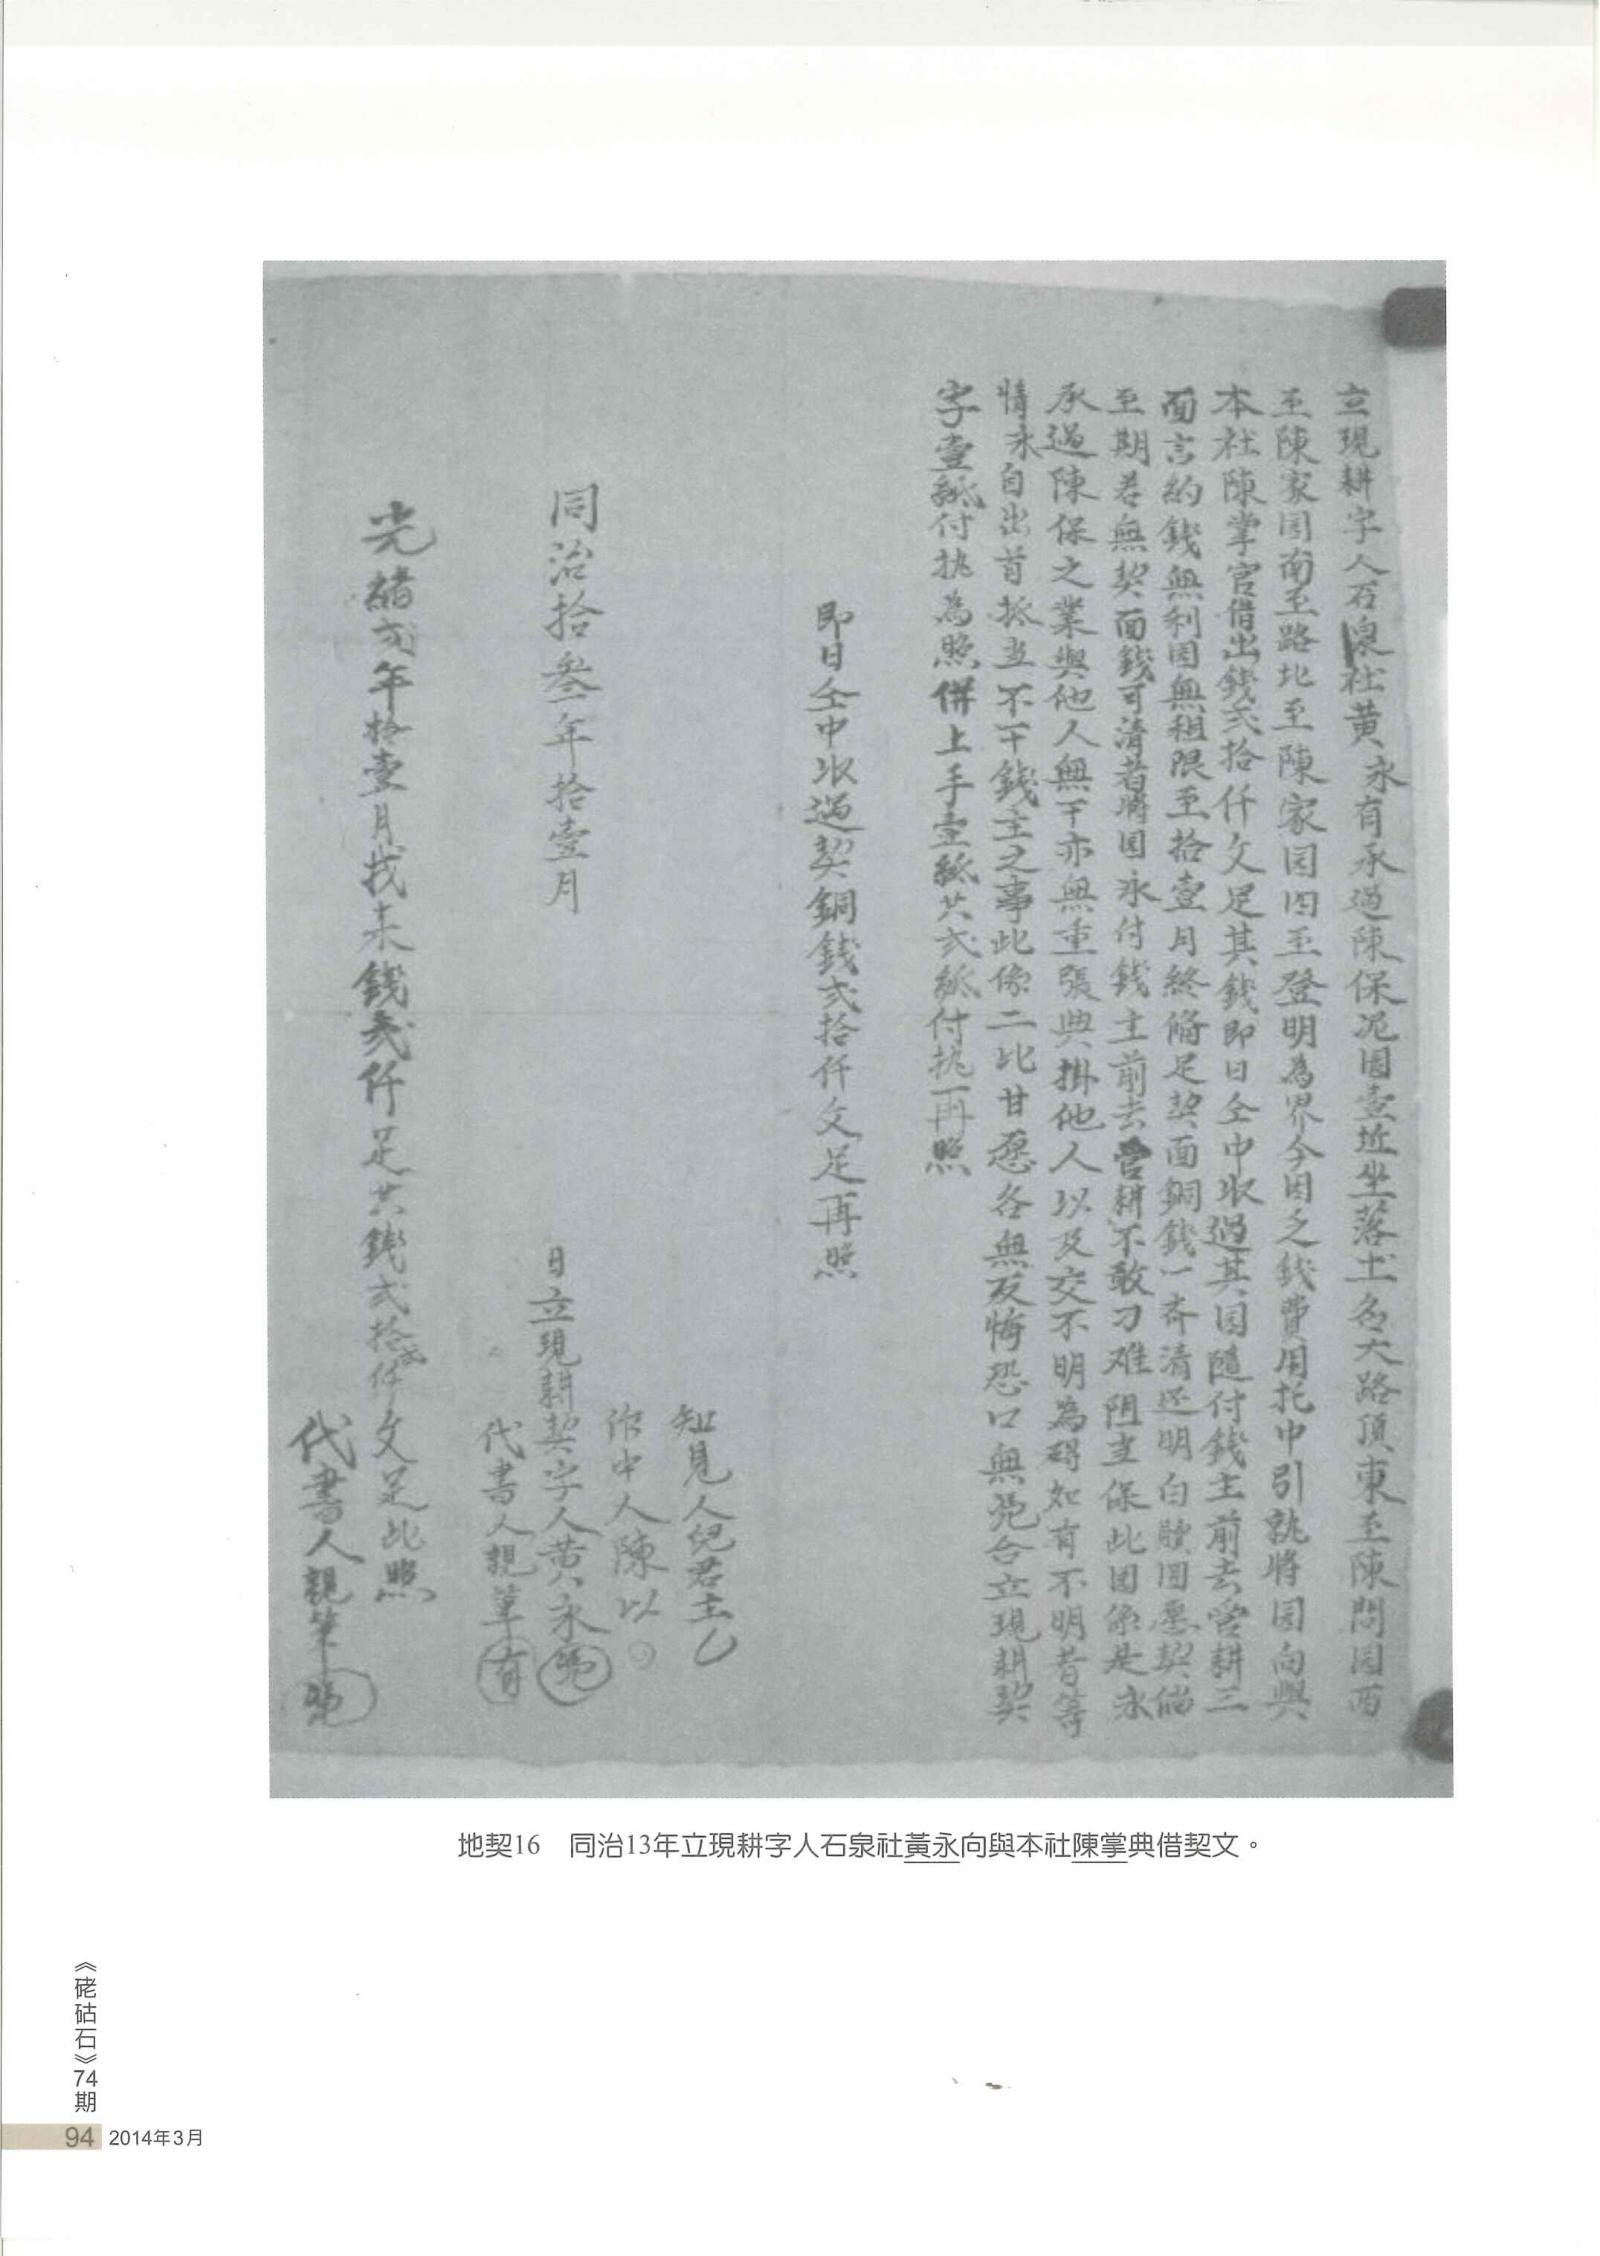 立現耕字人石泉社黃永有承過陳保泥園壹坵坐落土名大路頂東至陳問園西
至陳家园南至路北至陳家园四至登明為界今因乏錢費用托中引就將园向與
本社陳掌官借出錢弍拾仟文足其錢即日仝中收過其园隨付錢主前去營耕三
面言約錢無利园無租限至拾壹月終備足契面銅錢一齐清还明白贖回愿契倘
至期若無契面錢可清者將园永付錢主前去營耕不敢刁难阻当保此园係是永
承過陳保之業與他人無干亦無重張典掛他人以及交不明為碍如有不明者等
情永自出首抵当不干錢主之事此係二比甘愿各無反悔恐口無凭合立現耕契
字壹紙付执為照併上手壹紙共弍紙付执再照
即日仝中收過契銅錢弍拾仟文足再照
知見人倪君主
作中人陳以
同治拾叁年拾壹月 日立現耕契字人黃永號
代書人親筆有
光緒弍年拾壹月找来錢弍仟足共錢弍拾弍仟文足此照
代書人親筆號
地契16 同治13年立現耕字人石泉社黃永向與本社陳掌典借契文。
《硓𥑮石》74期
94 2014年3月